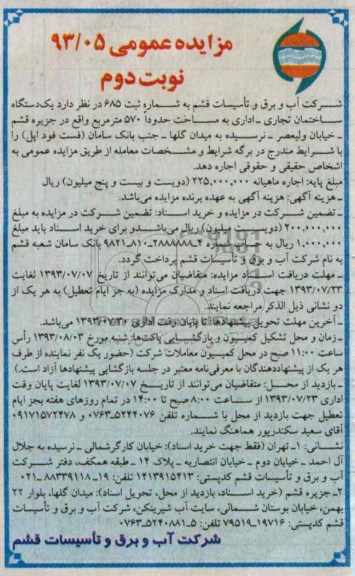 مزایده عمومی ۹۳/۰۵
نوبت دوم
شرکت آب و برق و تأسیسات قشم به شماره ثبت ۶۸۵ در نظر دارد یک دستگاه
ساختمان تجاری ـ اداری به مساحت حدوداً ۵۷۰ مترمربع واقع در جزیره قشم
ـ خیابان ولیعصر ـ نرسیده به میدان گلها ـ جنب بانک سامان (فست فود اپل) را
با شرایط مندرج در برگه شرایط و مشخصات معامله از طریق مزایده عمومی به
اشخاص حقیقی و حقوقی اجاره دهد.
مبلغ پایه: اجاره ماهیانه ۲۲۵,۰۰۰,۰۰۰ (دویست و بیست و پنج میلیون) ریال
ـ هزینه آگهی: هزینه آگهی به عهده برنده مزایده می‌باشد.
ـ تضمین شرکت در مزایده و خرید اسناد: تضمین شرکت در مزایده به مبلغ
۲۰۰,۰۰۰,۰۰۰ (دویست میلیون) ریال می‌باشد و برای خرید اسناد باید مبلغ
۱,۰۰۰,۰۰۰ ریال به حساب شماره ۴ـ۲۸۸۸۸۸ـ۸۱۰ـ۹۸۲۱ بانک سامان شعبه قشم
به نام شرکت آب و برق و تأسیسات قشم پرداخت گردد.
ـ مهلت دریافت اسناد مزایده: متقاضیان می‌توانند از تاریخ ۱۳۹۳/۰۷/۰۷ لغایت
۱۳۹۳/۰۷/۲۳ جهت دریافت اسناد و مدارک مزایده (به جز ایام تعطیل) به هر یک از
دو نشانی ذیل الذکر مراجعه نمایند.
ـ آخرین مهلت تحویل پیشنهادها: تا پایان وقت اداری ۱۳۹۳/۰۷/۳۰ می‌باشد.
ـ زمان و محل تشکیل کمیسیون و بازگشایی پاکت‌ها: شنبه مورخ ۱۳۹۳/۰۸/۰۳ رأس
ساعت ۱۱:۰۰ صبح در محل کمیسیون معاملات شرکت (حضور یک نفر نماینده از طرف
هر یک از پیشنهاددهندگان با معرفی‌نامه معتبر در جلسه بازگشایی پیشنهادها آزاد است.)
ـ بازدید از محل: متقاضیان می‌توانند از تاریخ ۱۳۹۳/۰۷/۰۷ لغایت پایان وقت
اداری ۱۳۹۳/۰۷/۲۳ از ساعت ۸:۰۰ صبح تا ۱۴:۰۰ در تمام روزهای هفته بجز ایام
تعطیل جهت بازدید از محل با شماره تلفن ۵۲۴۴۰۷۶ـ۰۷۶۳ و ۰۹۱۷۱۵۷۲۴۷۸
آقای سعید سکندرپور هماهنگ نمایند.
نشانی: ۱ـ تهران (فقط جهت خرید اسناد): خیابان کارگرشمالی ـ نرسیده به جلال
آل احمد ـ خیابان دوم ـ خیابان انتصاریه ـ پلاک ۱۴ ـ طبقه همکف، دفتر شرکت
آب و برق و تأسیسات قشم کدپستی: ۱۴۱۳۹۱۵۴۱۳ تلفن: ۱۹ـ۸۸۳۳۹۱۱۸ـ۰۲۱
۲ـ جزیره قشم (خرید اسناد، بازدید از محل، تحویل اسناد): میدان گلها، بلوار ۲۲
بهمن، خیابان بوستان شمالی، سایت آب شیرینکن، شرکت آب و برق و تأسیسات
قشم کدپستی: ۱۹۷۱۶ـ۷۹۵۱۹ تلفن: ۵ـ۵۲۴۰۸۸۱ـ۰۷۶۳
شرکت آب و برق و تأسیسات قشم